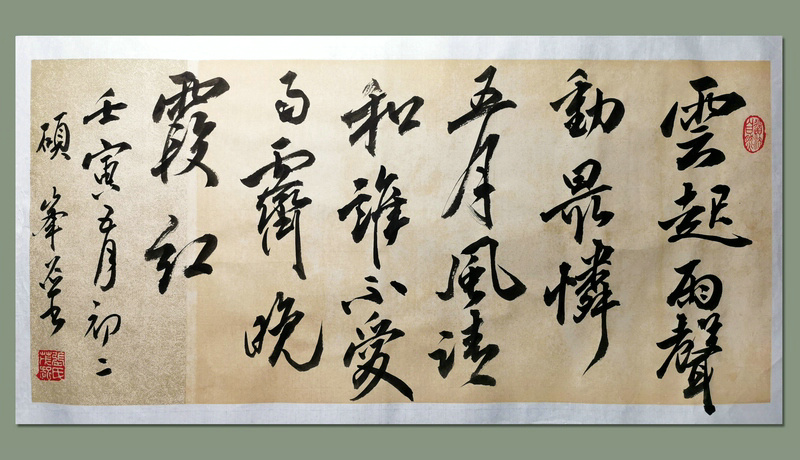 雲起雨聲
動最憐
五月風清
和誰不愛
雨霽晚
霞紅
壬寅五月初二
碩峯